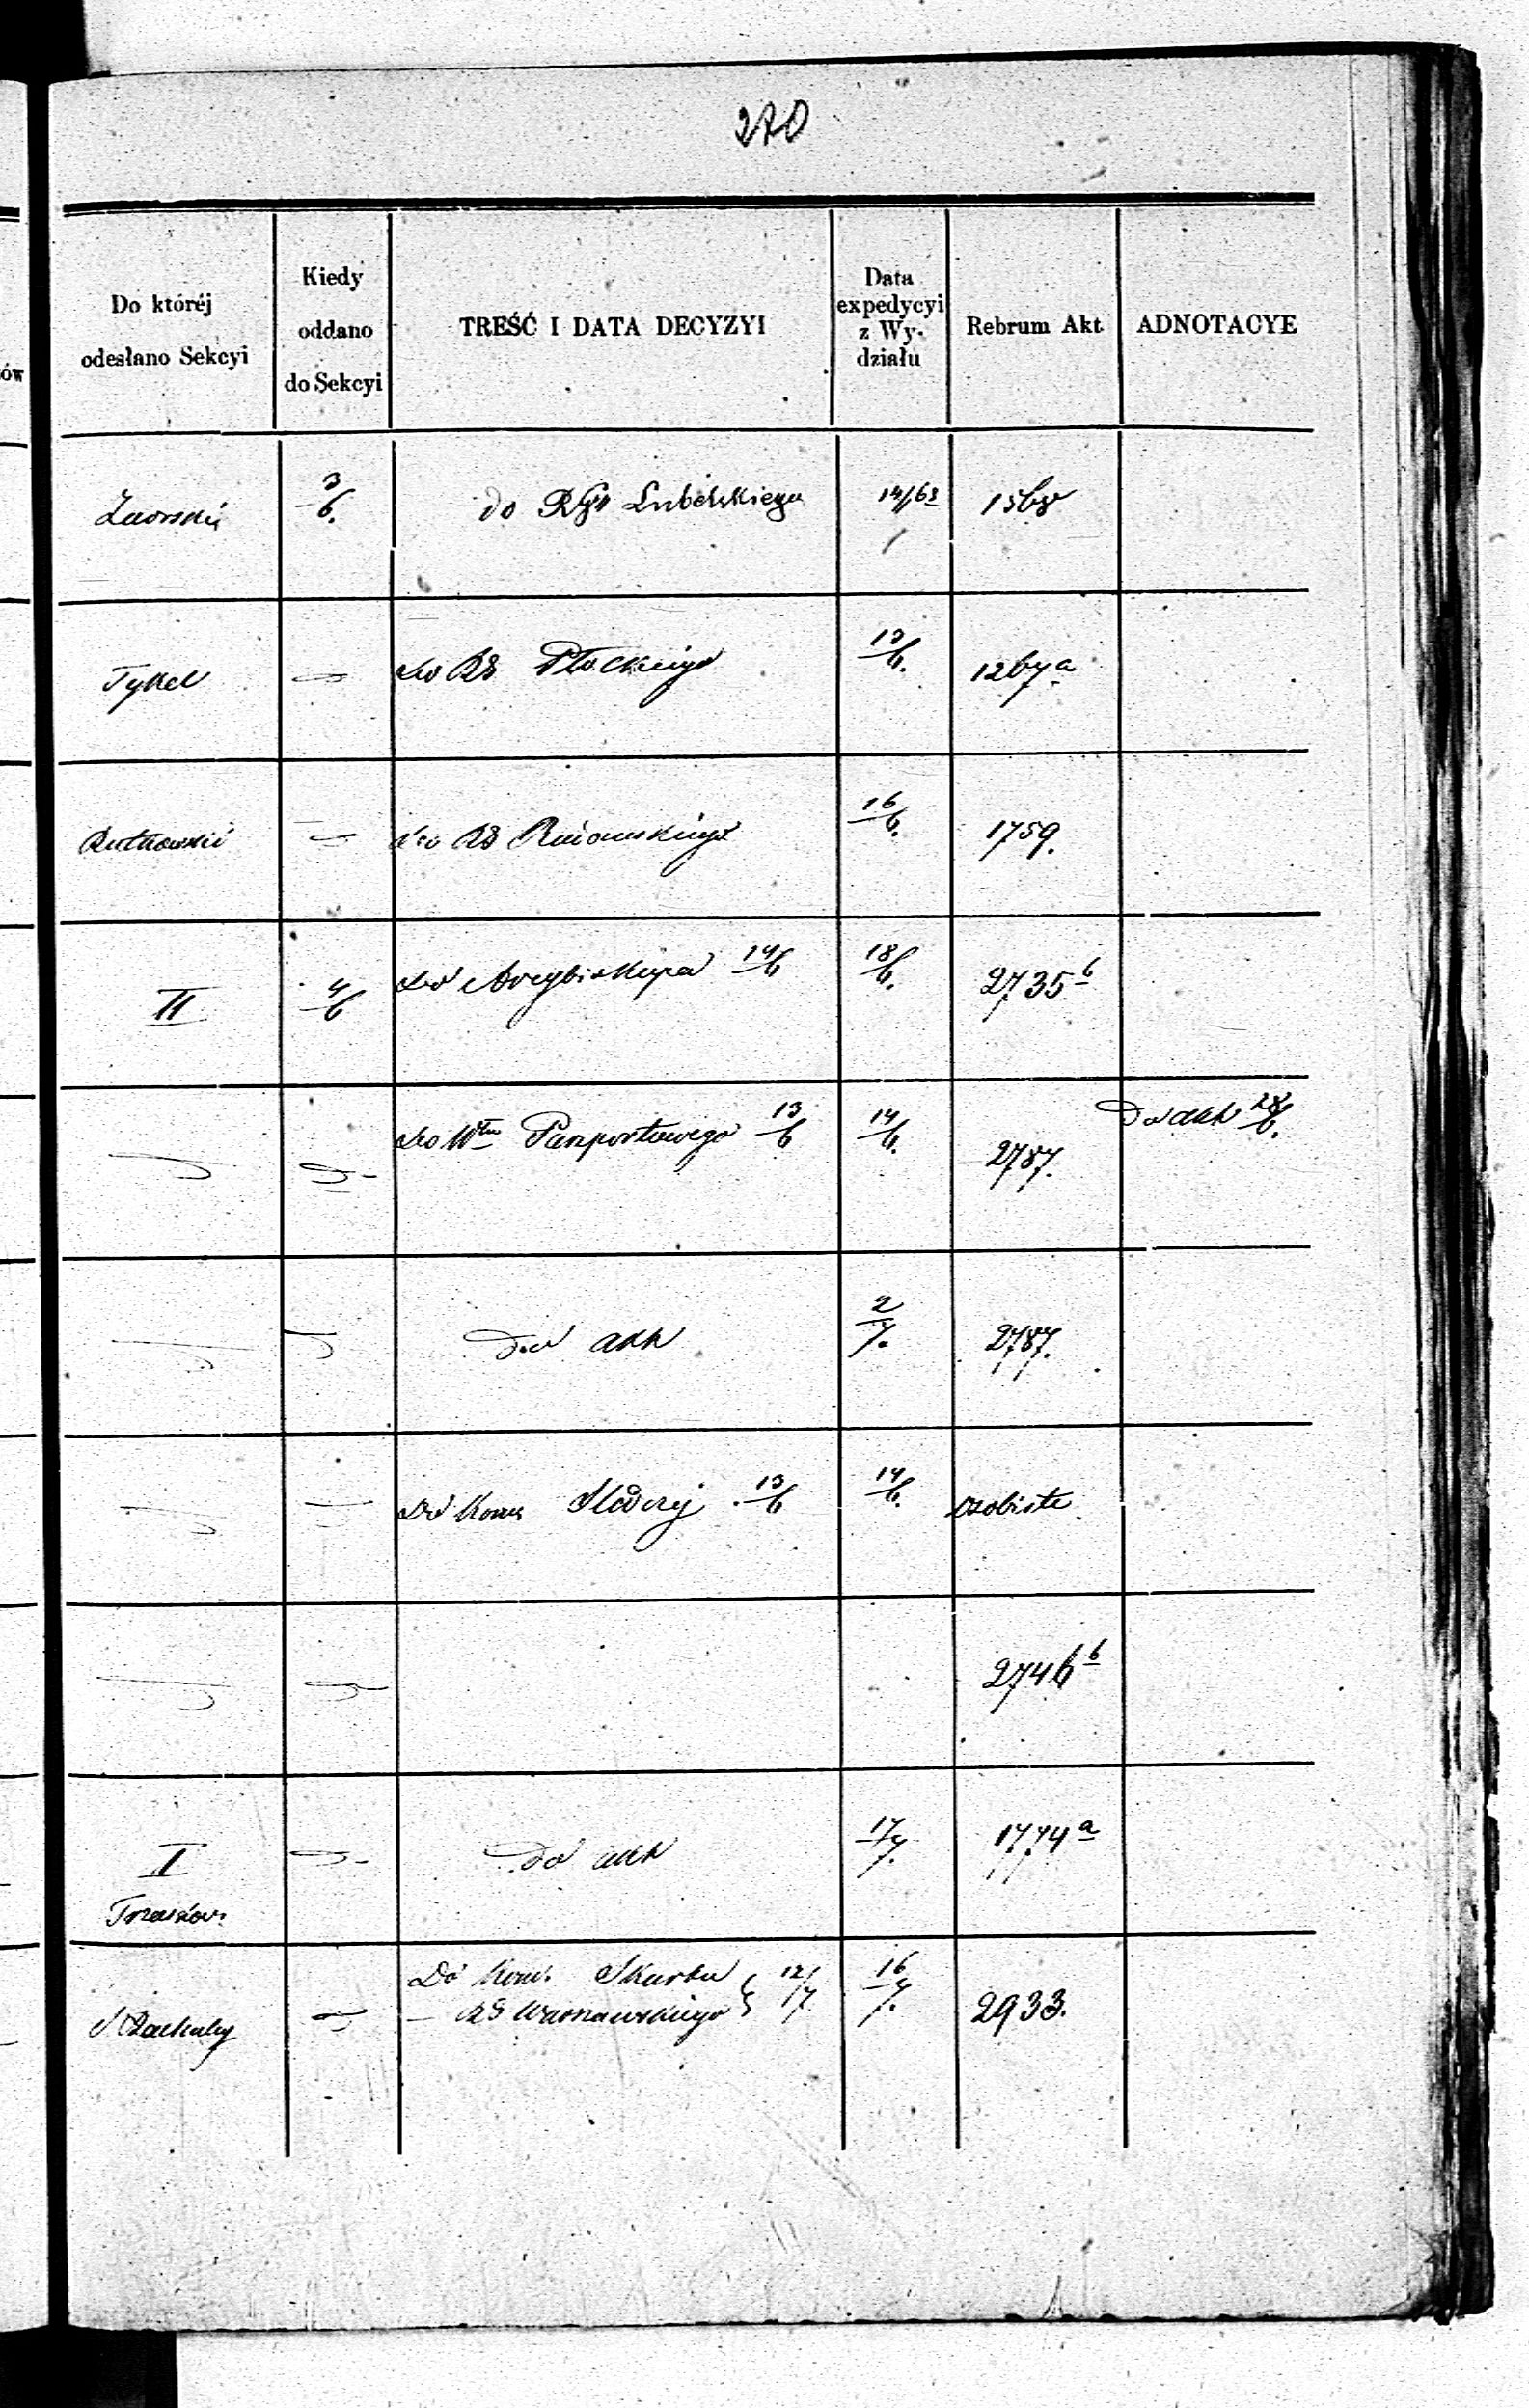 270
Do któréj odesłano Sekcyi
Kiedy oddano do Sekcyi
TREŚĆ I DATA DECYZYI
Data expedycyi z Wydziału
Rebrum Akt.
ADNOTACYE
ów
3/6. do Lubelskiego 14/6
Tykel do RG Płockiego 13/6. 1267a
Rutkowski do RG 16/6. 1759.
II 4/6 do Arcybiskupa 14/6 18/6. 2735b
do Paszportowego 13/6 14/6. 2787. Do akt 28/6.
Do akt 2/7. 2787.
Do Kom 13/6 14/6. osobiste
2746b
I Do akt 17/7. 1774a
Do Kom. Skarbu 12/7 16/7. 2933.
— RG Warszawskiego